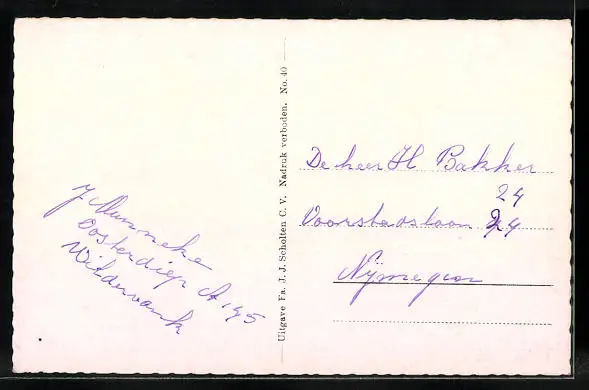 J Munneke
Oosterdiep A 145
Wildervank
Uitgave Fa. J. J. Scholten C. V. Nadruk verboden. No. 40
De heer H Bakker
24
Voorstadslaan 24
Nijmegen